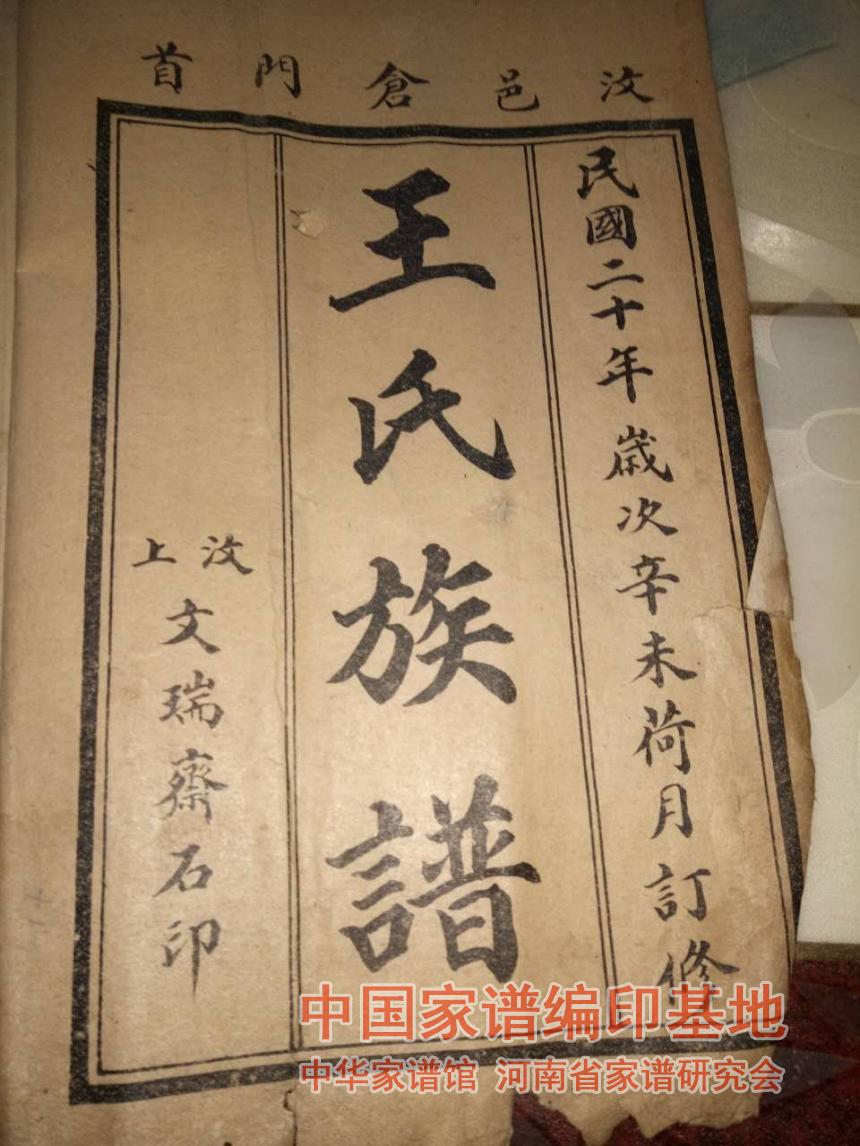 汶邑倉門首
民國二十年歲次辛未荷月訂修
王氏族譜
汶上
文瑞齋石印
中国家谱编印基地
中华家谱馆 河南省家谱研究会